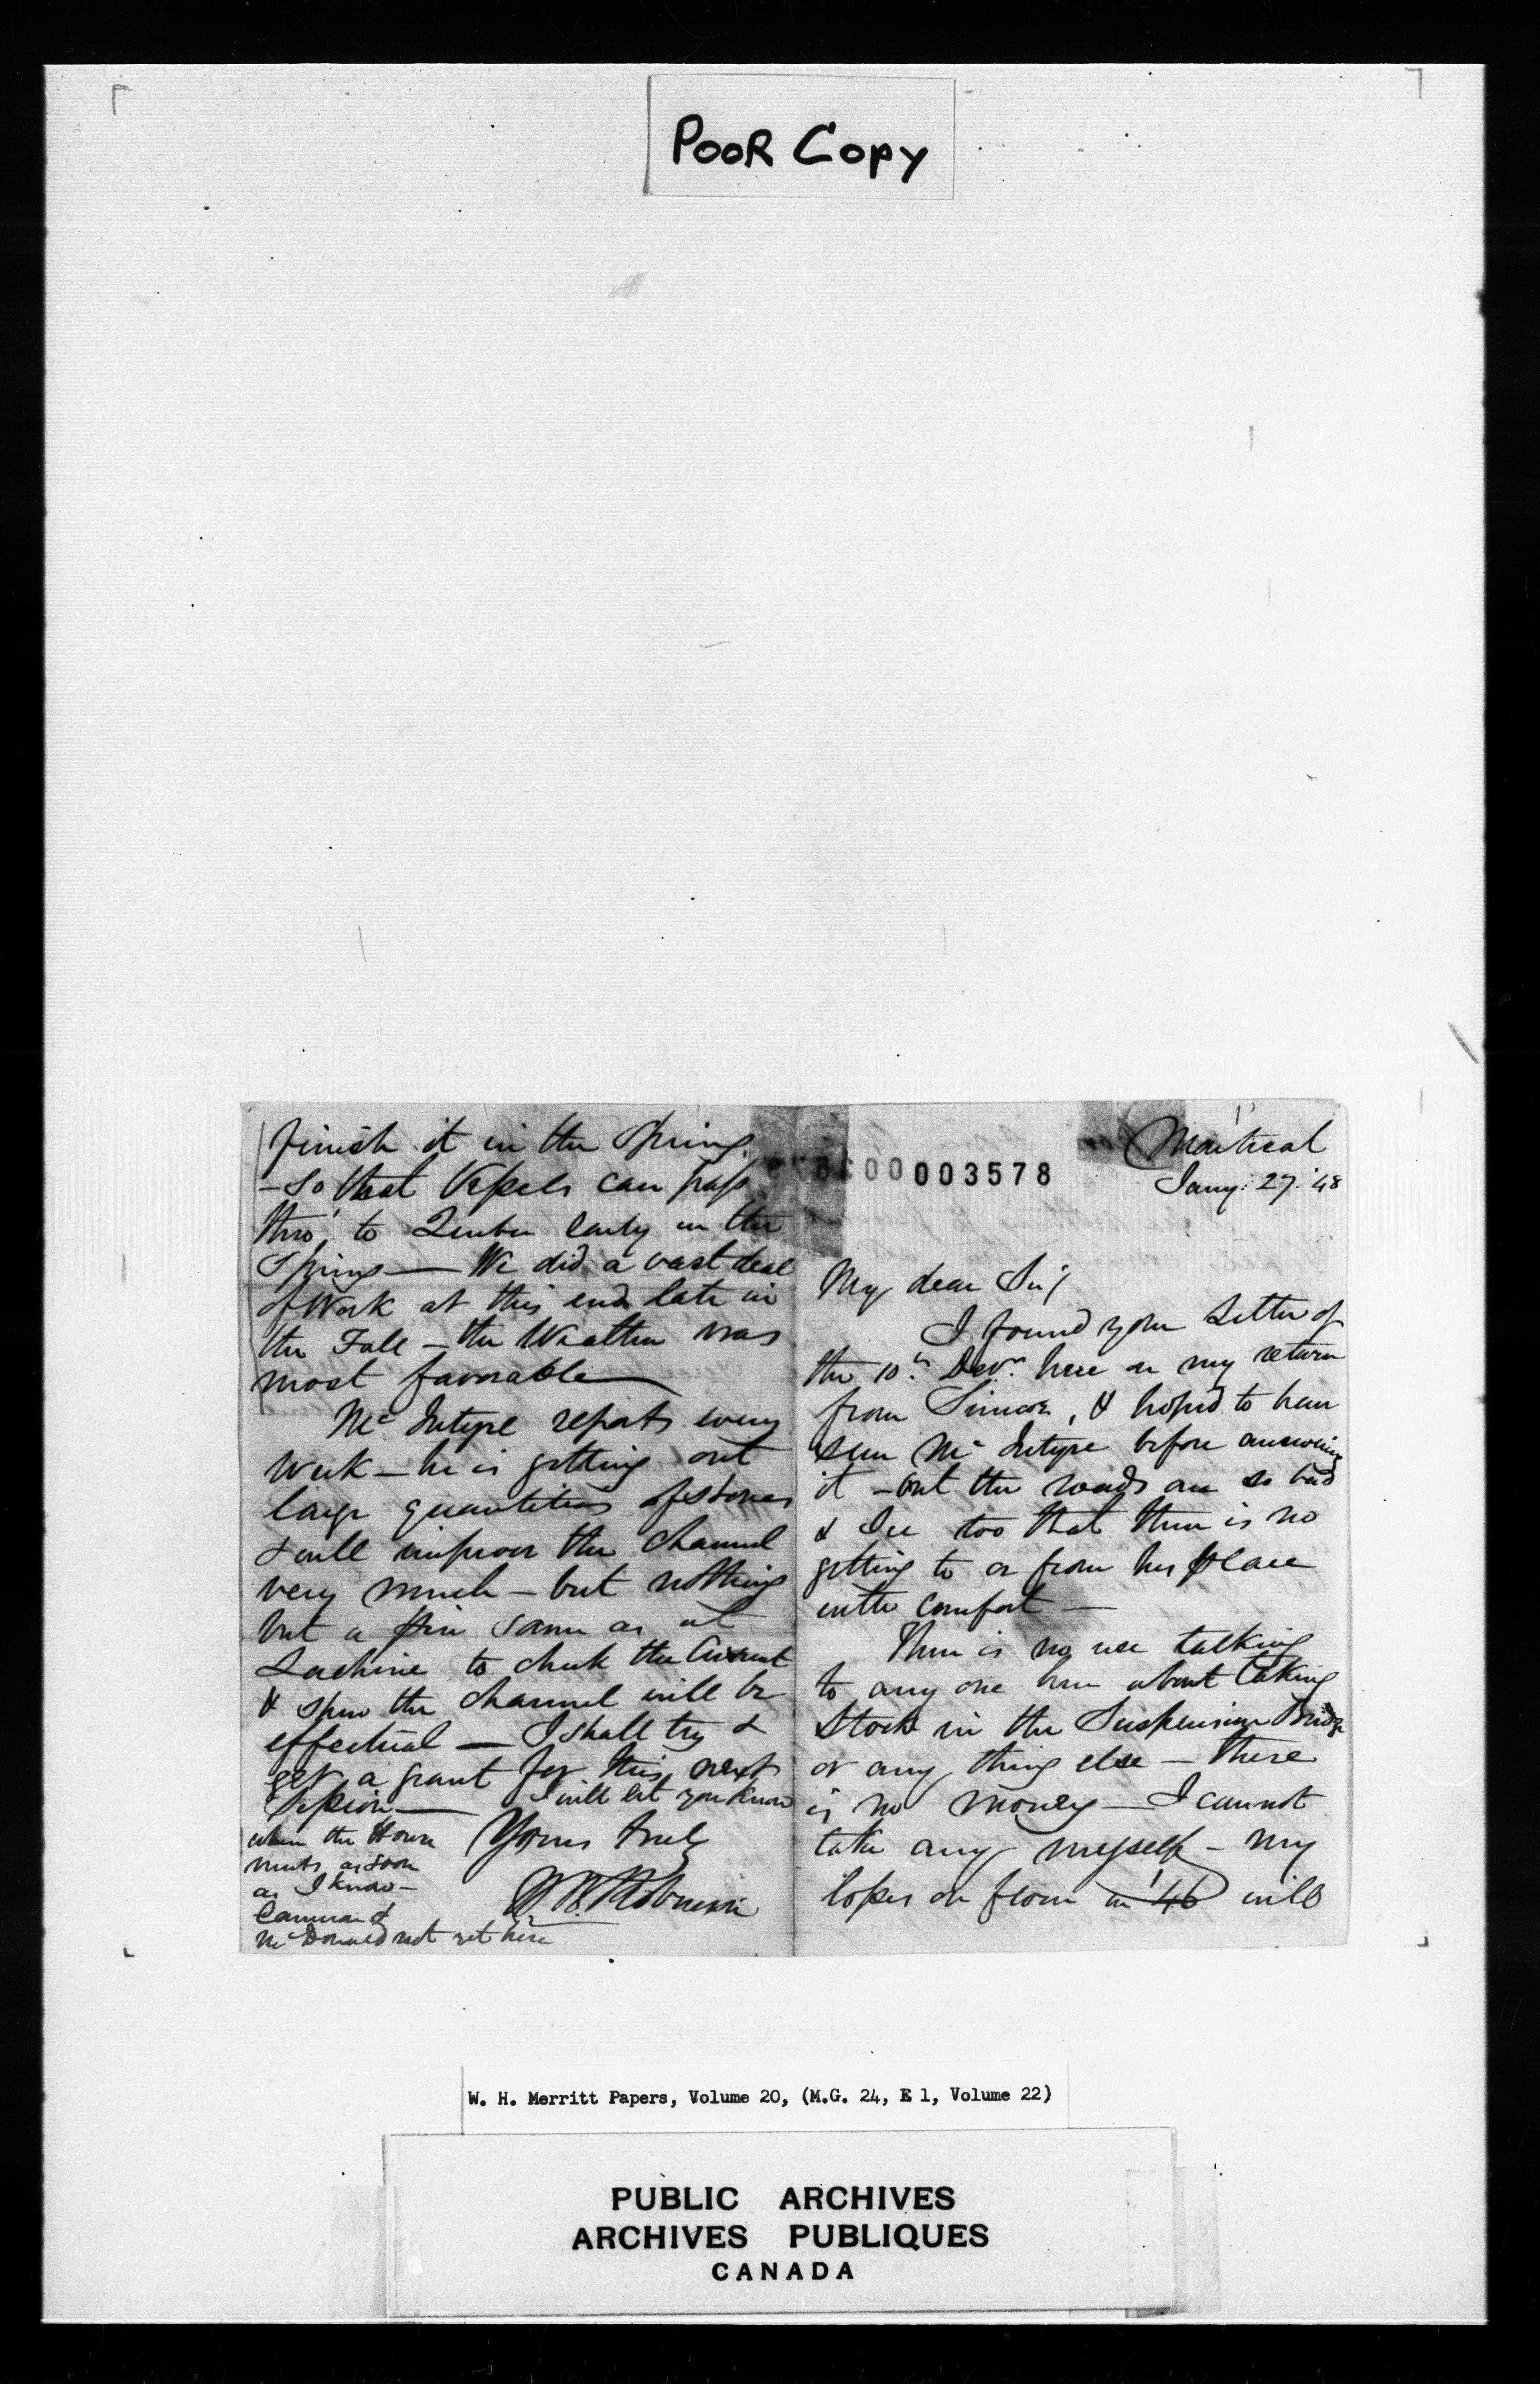 POOR COPY
finish it in the Spring
- So that Vessels can pass
thro' to Quebec early in the
Spring — We did a vast deal
of Work at this end late in
the Fall - the Weather was
most favorable —
Mc Intyre reports every
Week - he is getting out
large quantities of stones
& will improve the Channel
very much - but nothing
but a pier same as at
Lachine to check the Current
& the channel will be
effectual — I shall try &
get a grant for this next
Session — I will let you know
when the House
meets as soon
as I know -
Cameron &
McDonald not yet here
Yours truly
W. B. Robinson
003578
Montreal
Jany: 27. '48
My dear Sir/
I found your Letter of
the 10th Decr. here on my return
from Simcoe, & hoped to have
seen Mc Intyre before answering
it - but the roads are so bad
& Ice too that there is no
getting to or from his place
with comfort —
There is no use talking
to any one here about taking
Stock in the Suspension Bridge
or any thing else - there
is no money - I cannot
take any myself - my
losses on flour in '46 will
W. H. Merritt Papers, Volume 20, (M.G. 24, E 1, Volume 22)
PUBLIC ARCHIVES
ARCHIVES PUBLIQUES
CANADA